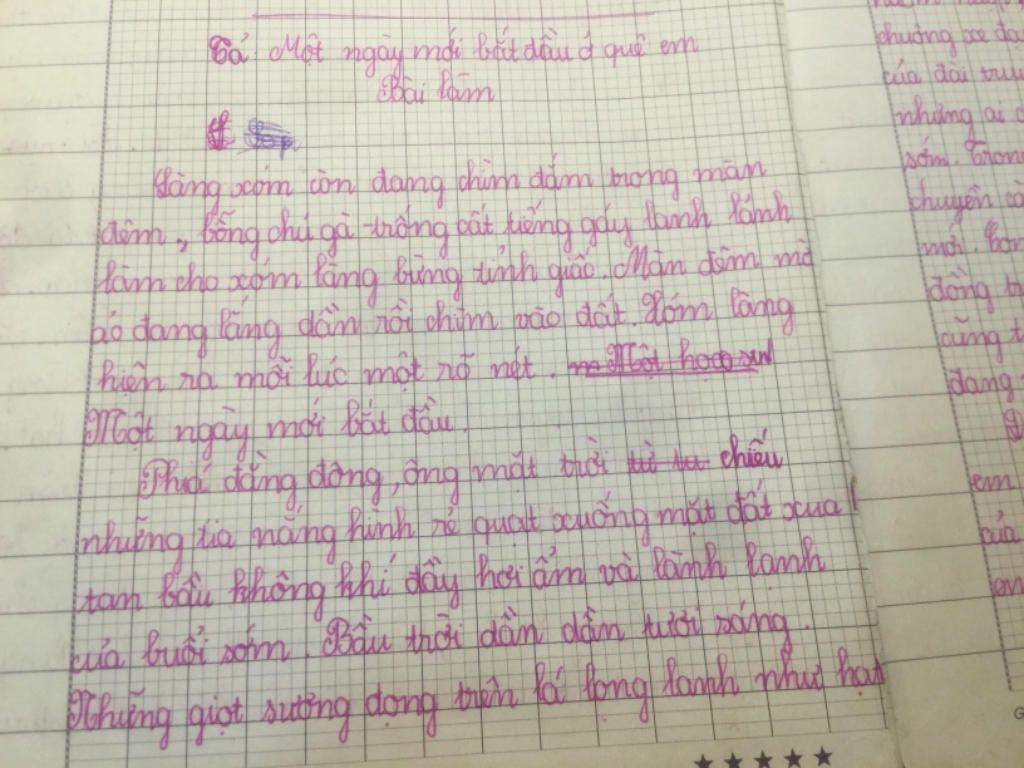 Tả Một ngày mới bắt đầu ở quê em
Bài làm
Làng xóm còn đang chìm đắm trong màn
đêm, bỗng chú gà trống cất tiếng gáy lanh lảnh
làm cho xóm làng bừng tỉnh giấc. Màn đêm mờ
ảo đang lắng dần rồi chìm vào đất. Xóm làng
hiện ra mỗi lúc một rõ nét. Một
Một ngày mới bắt đầu.
Phía đằng đông, ông mặt trời chiếu
những tia nắng hình rẻ quạt xuống mặt đất xua
tan bầu không khí đầy hơi ẩm và lành lạnh
của buổi sớm. Bầu trời dần dần tươi sáng.
Những giọt sương đọng trên lá long lanh như hạt
chưởng xe đạ
của đài truy
những ai
sớm. Trong
chuyện
mới.
đồng
cũng
đang
em
của
em